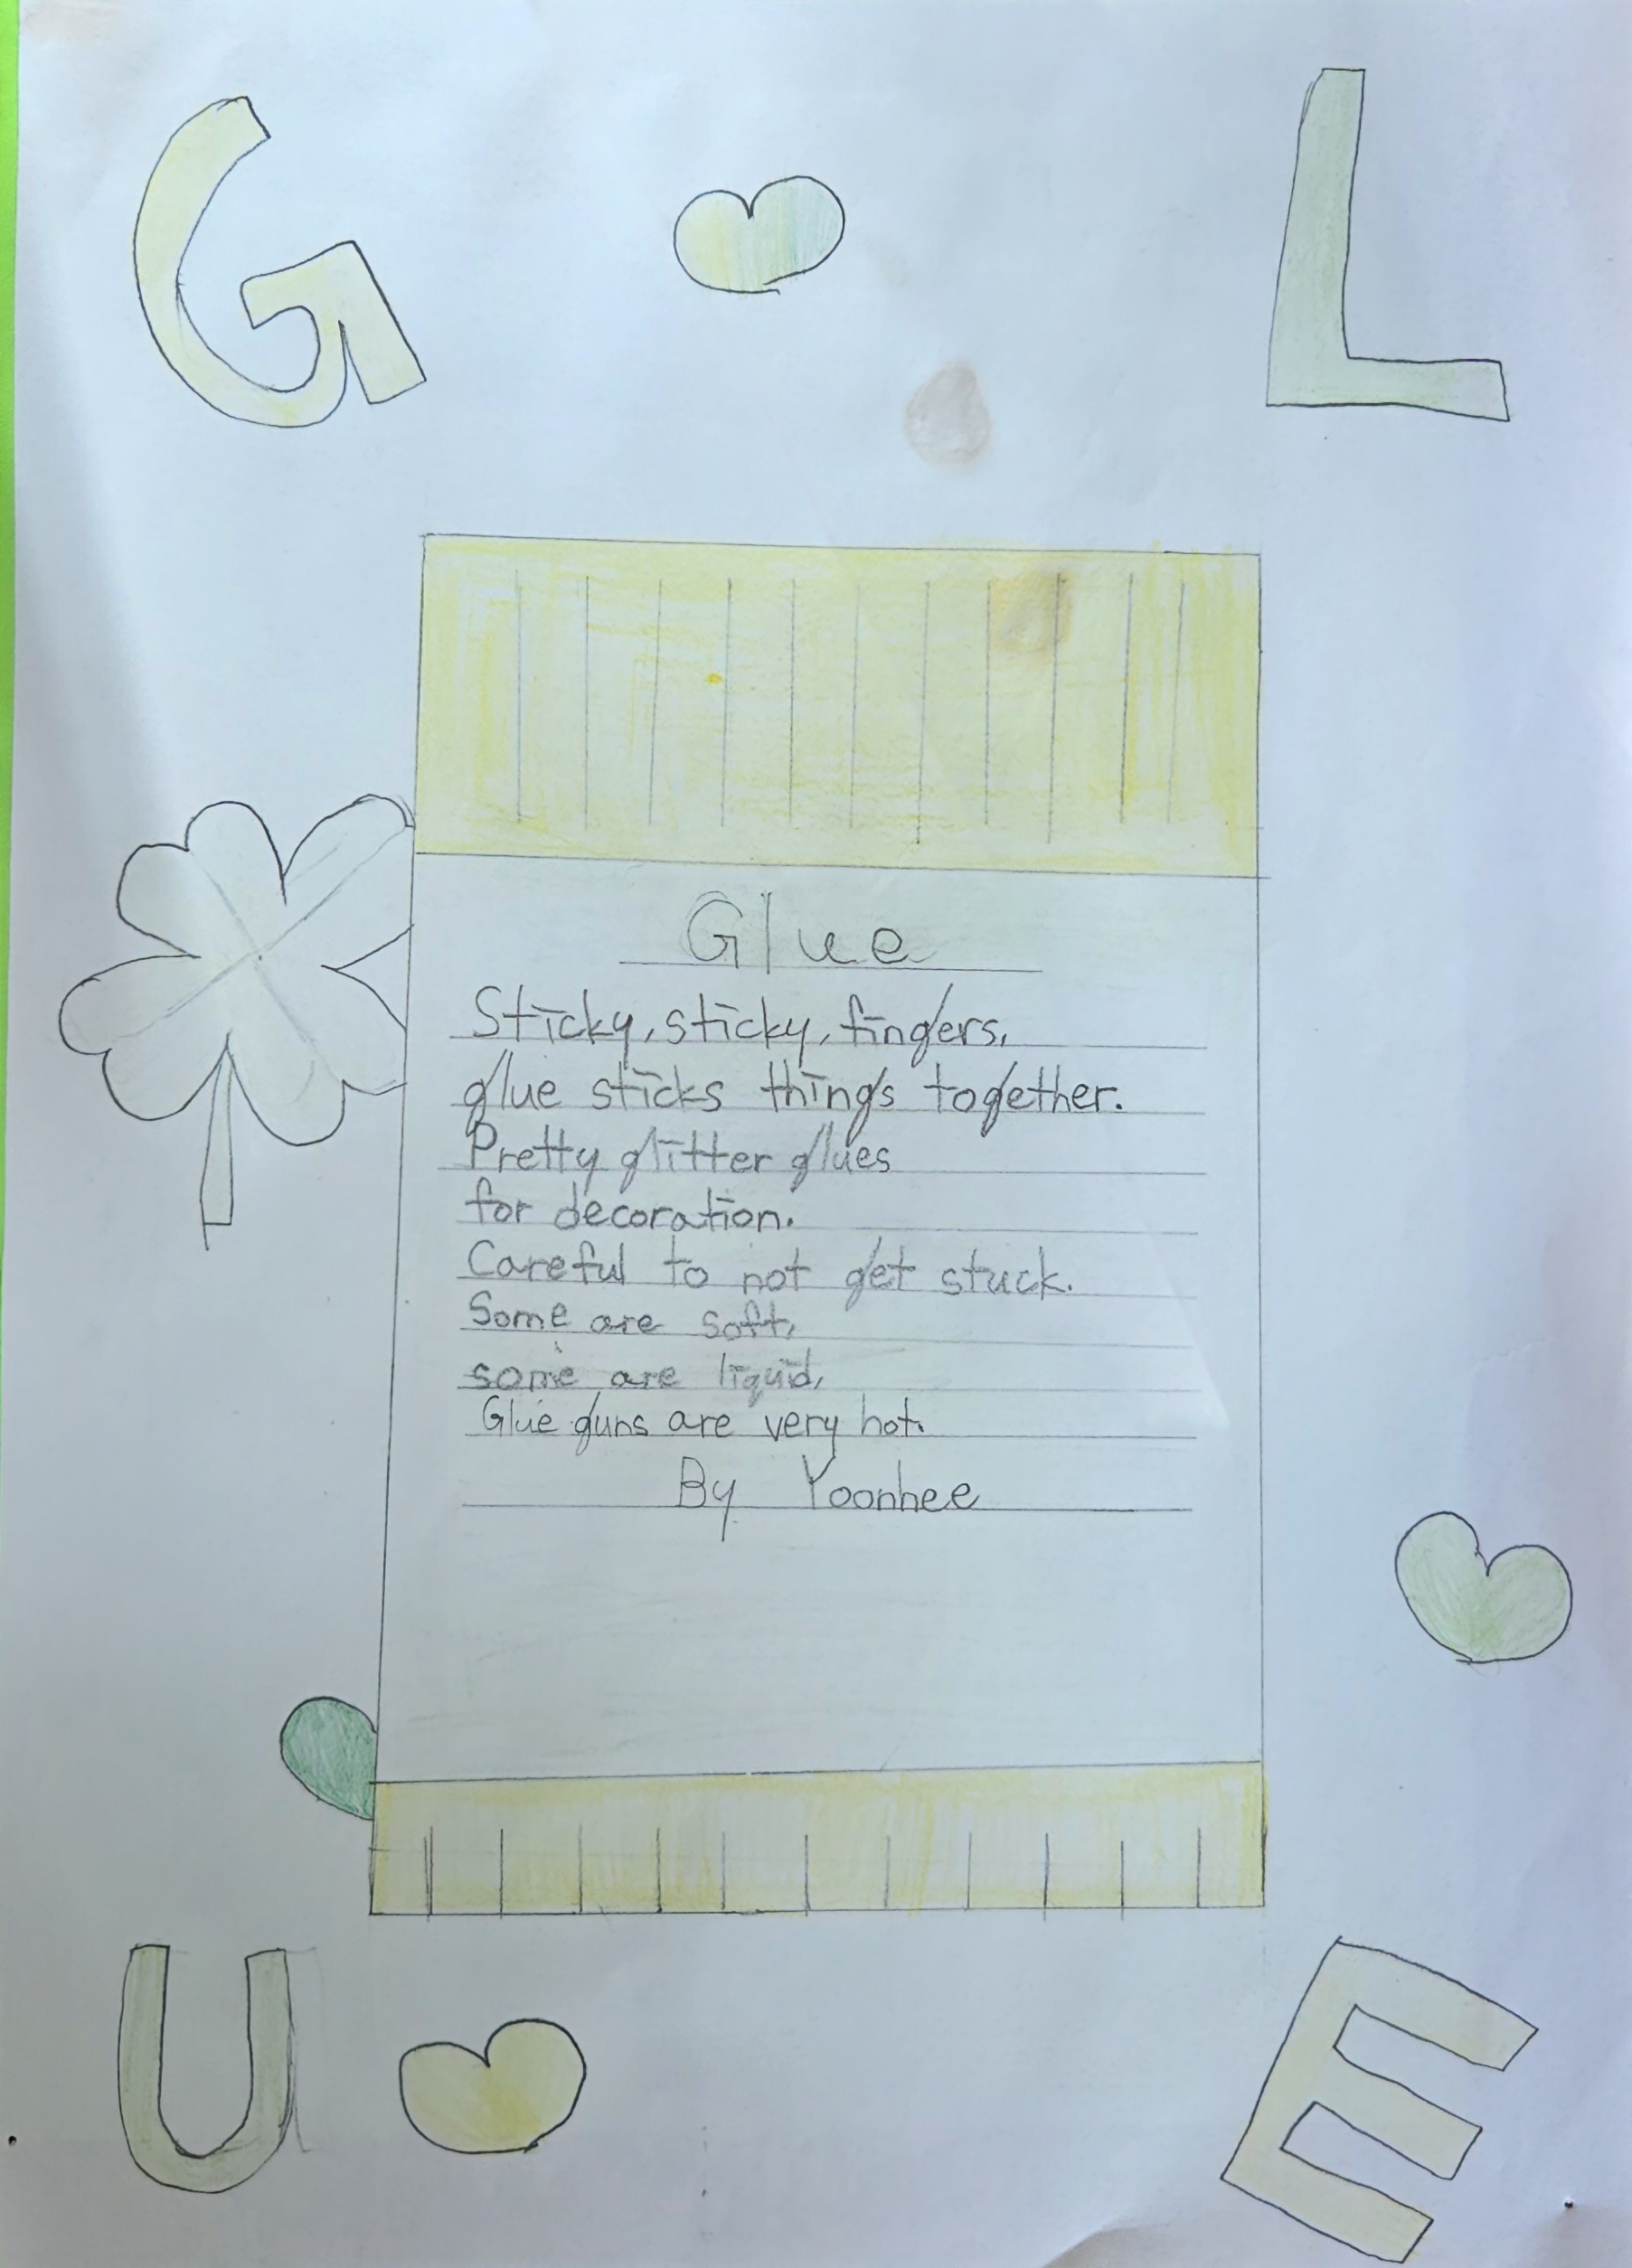 G L
Glue
Sticky, sticky, fingers,
glue sticks things together.
Pretty glitter glues
for decoration.
Careful to not get stuck.
Some are soft,
some are liquid,
Glue guns are very hot.
By Yoonhee
U E